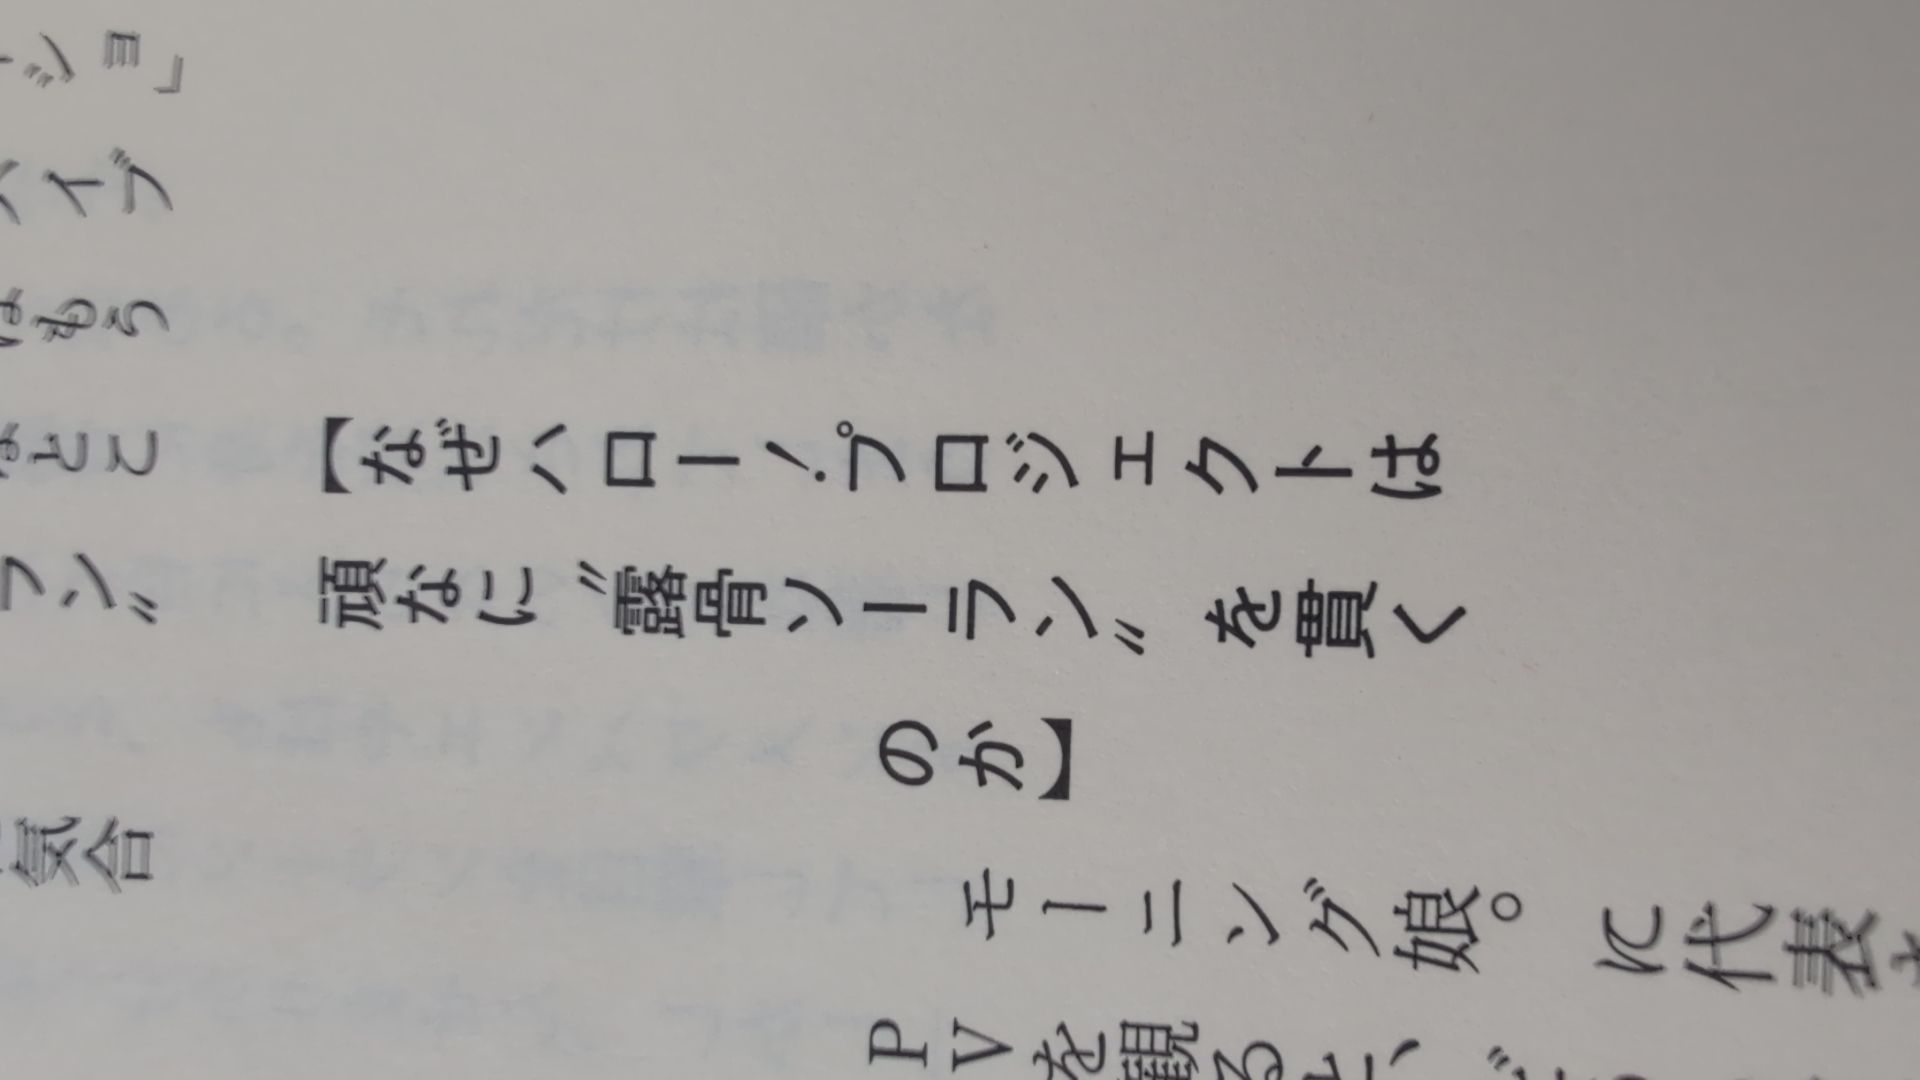 ジョ」
イブ
もう
とこ
ラン〟
気合
【なぜハロー!プロジェクトは
頑なに〝露骨ソーラン〟を貫く
のか】
モーニング娘。に代表
PVを観ると、